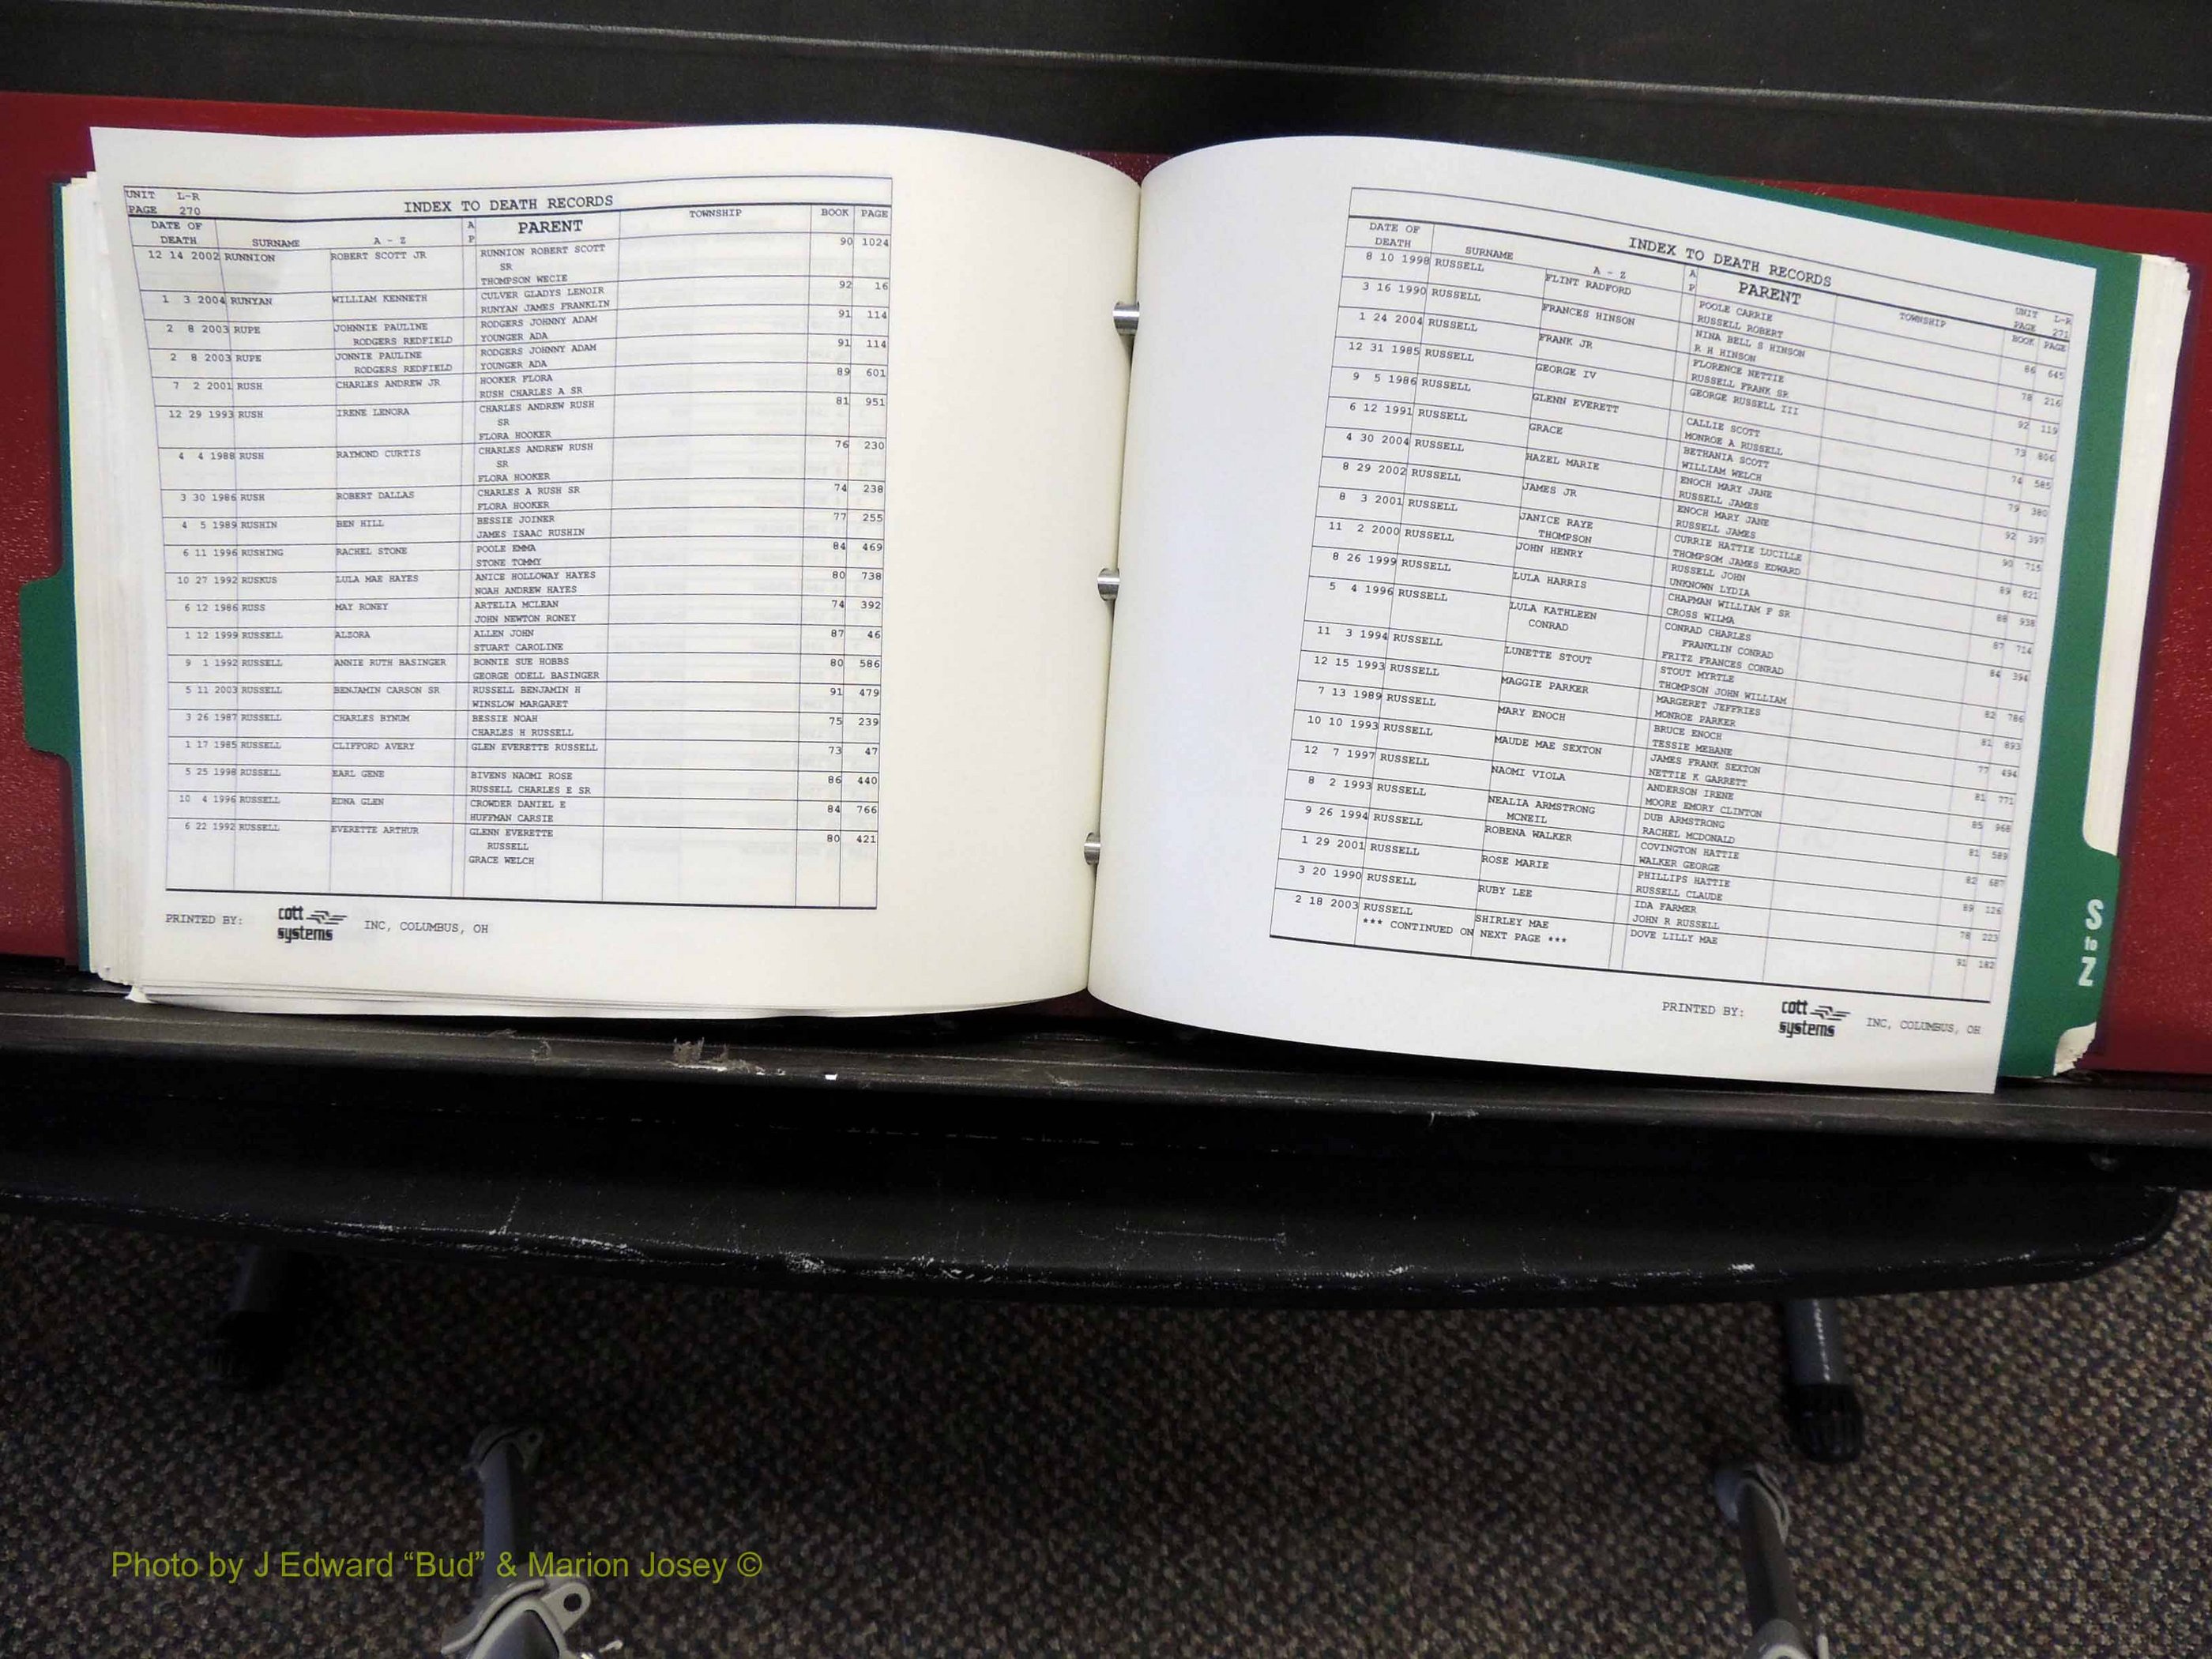 UNIT L-R
PAGE 270
INDEX TO DEATH RECORDS
DATE OF DEATH SURNAME A - Z A P PARENT TOWNSHIP BOOK PAGE
12 14 2002 RUNNION ROBERT SCOTT JR RUNNION ROBERT SCOTT 90 1024
SR
THOMPSON WECIE
1 3 2004 RUNYAN WILLIAM KENNETH CULVER GLADYS LENOIR 92 16
RUNYAN JAMES FRANKLIN
2 8 2003 RUPE JOHNNIE PAULINE RODGERS JOHNNY ADAM 91 114
RODGERS REDFIELD YOUNGER ADA
2 8 2003 RUPE JONNIE PAULINE RODGERS JOHNNY ADAM 91 114
RODGERS REDFIELD YOUNGER ADA
7 2 2001 RUSH CHARLES ANDREW JR HOOKER FLORA 89 601
RUSH CHARLES A SR
12 29 1993 RUSH IRENE LENORA CHARLES ANDREW RUSH 81 951
SR
FLORA HOOKER
4 4 1988 RUSH RAYMOND CURTIS CHARLES ANDREW RUSH 76 230
SR
FLORA HOOKER
3 30 1986 RUSH ROBERT DALLAS CHARLES A RUSH SR 74 238
FLORA HOOKER
4 5 1989 RUSHIN BEN HILL BESSIE JOINER 77 255
JAMES ISAAC RUSHIN
6 11 1996 RUSHING RACHEL STONE POOLE EMMA 84 469
STONE TOMMY
10 27 1992 RUSKUS LULA MAE HAYES ANICE HOLLOWAY HAYES 80 738
NOAH ANDREW HAYES
6 12 1986 RUSS MAY RONEY ARTELIA MCLEAN 74 392
JOHN NEWTON RONEY
1 12 1999 RUSSELL ALZORA ALLEN JOHN 87 46
STUART CAROLINE
9 1 1992 RUSSELL ANNIE RUTH BASINGER BONNIE SUE HOBBS 80 586
GEORGE ODELL BASINGER
5 11 2003 RUSSELL BENJAMIN CARSON SR RUSSELL BENJAMIN H 91 479
WINSLOW MARGARET
3 26 1987 RUSSELL CHARLES BYNUM BESSIE NOAH 75 239
CHARLES H RUSSELL
1 17 1985 RUSSELL CLIFFORD AVERY GLEN EVERETTE RUSSELL 73 47
5 25 1998 RUSSELL EARL GENE BIVENS NAOMI ROSE 86 440
RUSSELL CHARLES E SR
10 4 1996 RUSSELL EDNA GLEN CROWDER DANIEL E 84 766
HUFFMAN CARSIE
6 22 1992 RUSSELL EVERETTE ARTHUR GLENN EVERETTE 80 421
RUSSELL
GRACE WELCH
PRINTED BY: cott systems INC, COLUMBUS, OH
INDEX TO DEATH RECORDS
UNIT L-R
PAGE 271
DATE OF DEATH SURNAME A - Z A P PARENT TOWNSHIP BOOK PAGE
8 10 1998 RUSSELL FLINT RADFORD POOLE CARRIE 86 645
RUSSELL ROBERT
3 16 1990 RUSSELL FRANCES HINSON NINA BELL S HINSON 78 216
R H HINSON
1 24 2004 RUSSELL FRANK JR FLORENCE NETTIE 92 119
RUSSELL FRANK SR
12 31 1985 RUSSELL GEORGE IV GEORGE RUSSELL III 73 806
9 5 1986 RUSSELL GLENN EVERETT CALLIE SCOTT 74 585
MONROE A RUSSELL
6 12 1991 RUSSELL GRACE BETHANIA SCOTT 79 380
WILLIAM WELCH
4 30 2004 RUSSELL HAZEL MARIE ENOCH MARY JANE 92 397
RUSSELL JAMES
8 29 2002 RUSSELL JAMES JR ENOCH MARY JANE 90 715
RUSSELL JAMES
8 3 2001 RUSSELL JANICE RAYE CURRIE HATTIE LUCILLE 89 821
THOMPSON THOMPSOM JAMES EDWARD
11 2 2000 RUSSELL JOHN HENRY RUSSELL JOHN 88 938
UNKNOWN LYDIA
8 26 1999 RUSSELL LULA HARRIS CHAPMAN WILLIAM F SR 87 714
CROSS WILMA
5 4 1996 RUSSELL LULA KATHLEEN CONRAD CHARLES 84 394
CONRAD FRANKLIN CONRAD
FRITZ FRANCES CONRAD
11 3 1994 RUSSELL LUNETTE STOUT STOUT MYRTLE 82 786
THOMPSON JOHN WILLIAM
12 15 1993 RUSSELL MAGGIE PARKER MARGERET JEFFRIES 81 893
MONROE PARKER
7 13 1989 RUSSELL MARY ENOCH BRUCE ENOCH 77 494
TESSIE MEBANE
10 10 1993 RUSSELL MAUDE MAE SEXTON JAMES FRANK SEXTON 81 771
NETTIE K GARRETT
12 7 1997 RUSSELL NAOMI VIOLA ANDERSON IRENE 85 968
MOORE EMORY CLINTON
8 2 1993 RUSSELL NEALIA ARMSTRONG DUB ARMSTRONG 81 589
MCNEIL RACHEL MCDONALD
9 26 1994 RUSSELL ROBENA WALKER COVINGTON HATTIE 82 687
WALKER GEORGE
1 29 2001 RUSSELL ROSE MARIE PHILLIPS HATTIE 89 126
RUSSELL CLAUDE
3 20 1990 RUSSELL RUBY LEE IDA FARMER 78 223
JOHN R RUSSELL
2 18 2003 RUSSELL SHIRLEY MAE DOVE LILLY MAE 91 182
*** CONTINUED ON NEXT PAGE ***
PRINTED BY: cott systems INC, COLUMBUS, OH
S to Z
Photo by J Edward “Bud” & Marion Josey ©